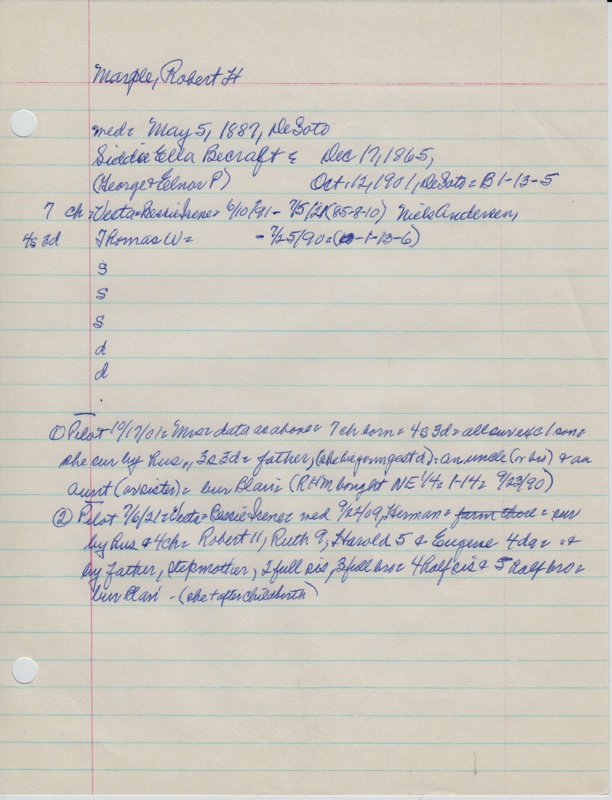 Marple, Robert H
med = May 5, 1887, DeSoto
Siddie Ella Becraft = Dec 17, 1865,
(George & Elnor P) Oct. 12, 1901, DeSoto = B 1-13-5
7 ch = Vesta = Bessie Irene = 6/10/91 - 7/5/21 (85-8-10) Niels Andersen,
4s 3d Thomas W = - 7/25/90 = (1-13-6)
s
s
s
d
d
.
① Pilot 10/17/01 = Mrs = data as above = 7 ch born = 4s 3d = all sur exc 1 son =
she sur by hus., 3s 3d = father, (she = youngest d) = an uncle (or bro) & an
aunt (or sister) = bur Blair (RHM bought NE 1/4 = 1-14 = 9/23/90)
② Pilot 7/6/21 = Vesta = Bessie Irene = med 9/22/09, Herman = = sur
by hus & 4 ch = Robert 11, Ruth 9, Harold 5 & Eugene 4 da = &
by father, stepmother, 2 full sis, 3 full bro = 4 half sis & 5 half bro =
bur Blair - (she + after childbirth)